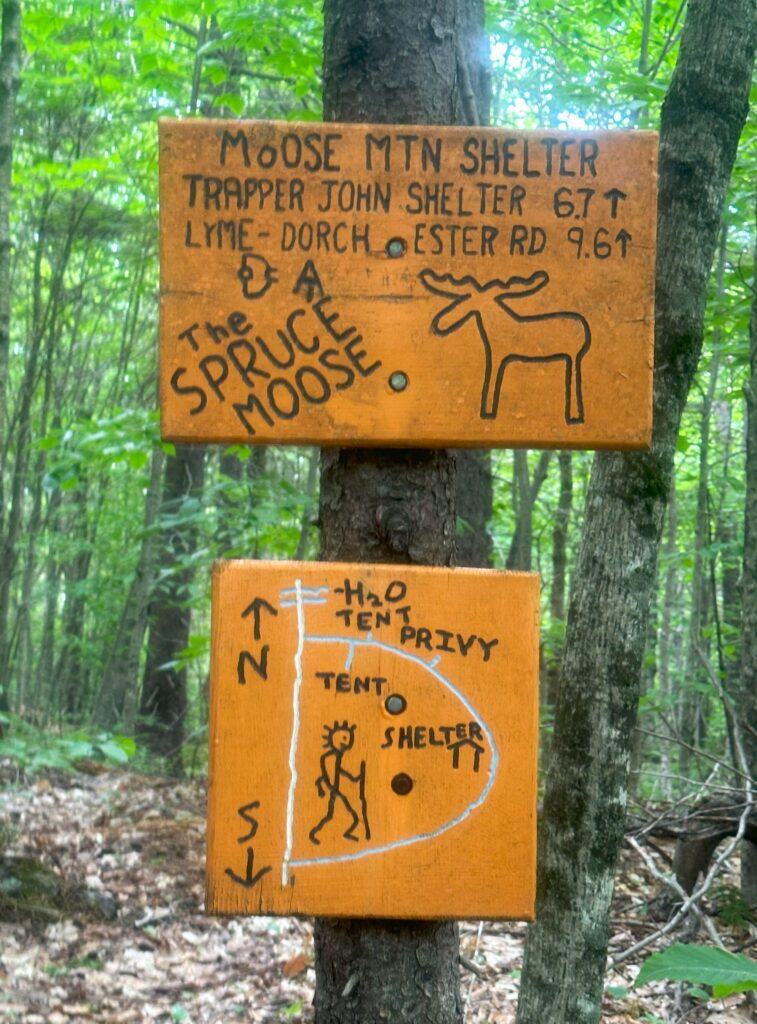 MOOSE MTN SHELTER
TRAPPER JOHN SHELTER 6.7↑
LYME-DORCHESTER RD 9.6↑
The
SPRUCE
MOOSE
H2O
TENT
PRIVY
N
TENT
SHELTER
S